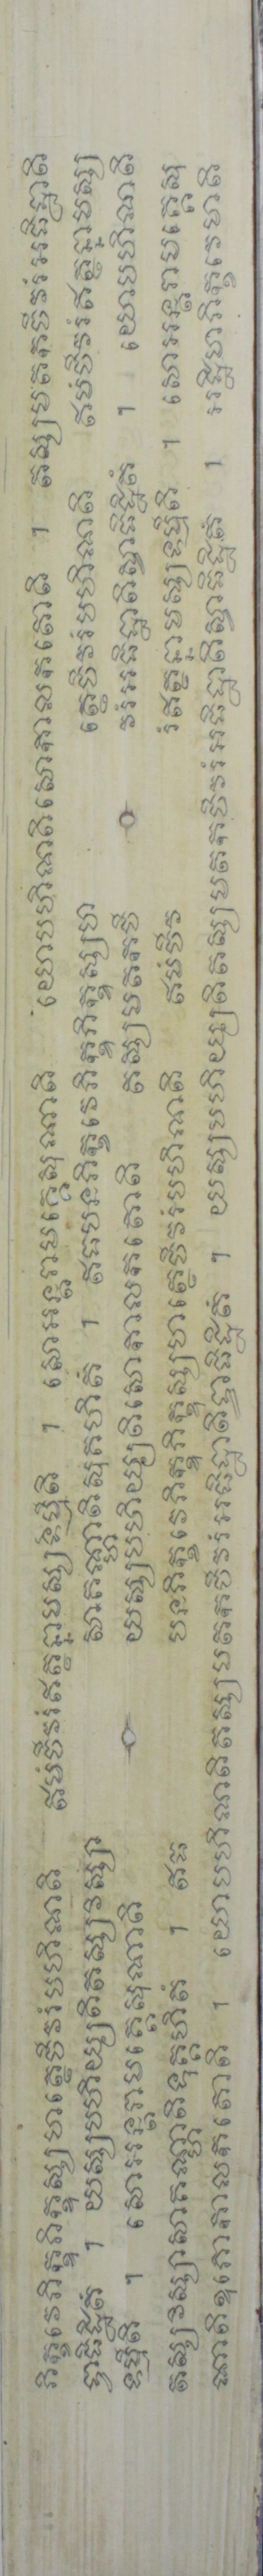 ភិក្ខវេភិក្ខុភិក្ខុស្សហត្ថេចីវរំបហិណតិ ឥមំចីវរំឥត្ថន្នាមស្សទេហីតិ ។ សោអន្តរាមគ្គេសុណាតិ យោបហិណតិសោកាលកតោតិ ។ តស្សមតកចីវរំអធិដ្ឋាតិ
ទ្វាធិដ្ឋិតំ ។ យស្សបហិយ្យតិតស្សវិស្សា សាគណ្ហាតិសុគហិតំ ។ ឥធបនភិក្ខវេភិក្ខុភិក្ខុស្សហ ត្ថេចីវរំបហិណតិ ឥមំចីវរំឥត្ថន្នាមស្ស
ទេហីតិ ។ សោអន្តរាមគ្គេសុណាតិ យស្សបហិយ្យតិសោកាលកតោតិ តស្សមតកចី វរំអធិដ្ឋាតិស្វាធិដ្ឋិតំ ។ យោបហិណតិ
តស្សវិស្សាសាគណ្ហាតិទុគ្គហិតំ ។ ឥធ បនភិក្ខវេភិក្ខុភិក្ខុស្សហត្ថេចីវរំបហិណតិ ឥមំចីវ រំឥត្ថន្នាមស្សទេហីតិ ។ សោអន្តរាមគ្គេសុ
ណាតិឧភោកាលកតោតិ ។ យោបហិណតិតស្សមតកចីវរំអធិដ្ឋាតិទ្វាធិដ្ឋិតំ ។ យស្សបហិយ្យតិតស្សមតកចីវរំអធិដ្ឋាតិស្វាធិដ្ឋិតំ ។ អដ្ឋិមាភិក្ខវេមាតិ